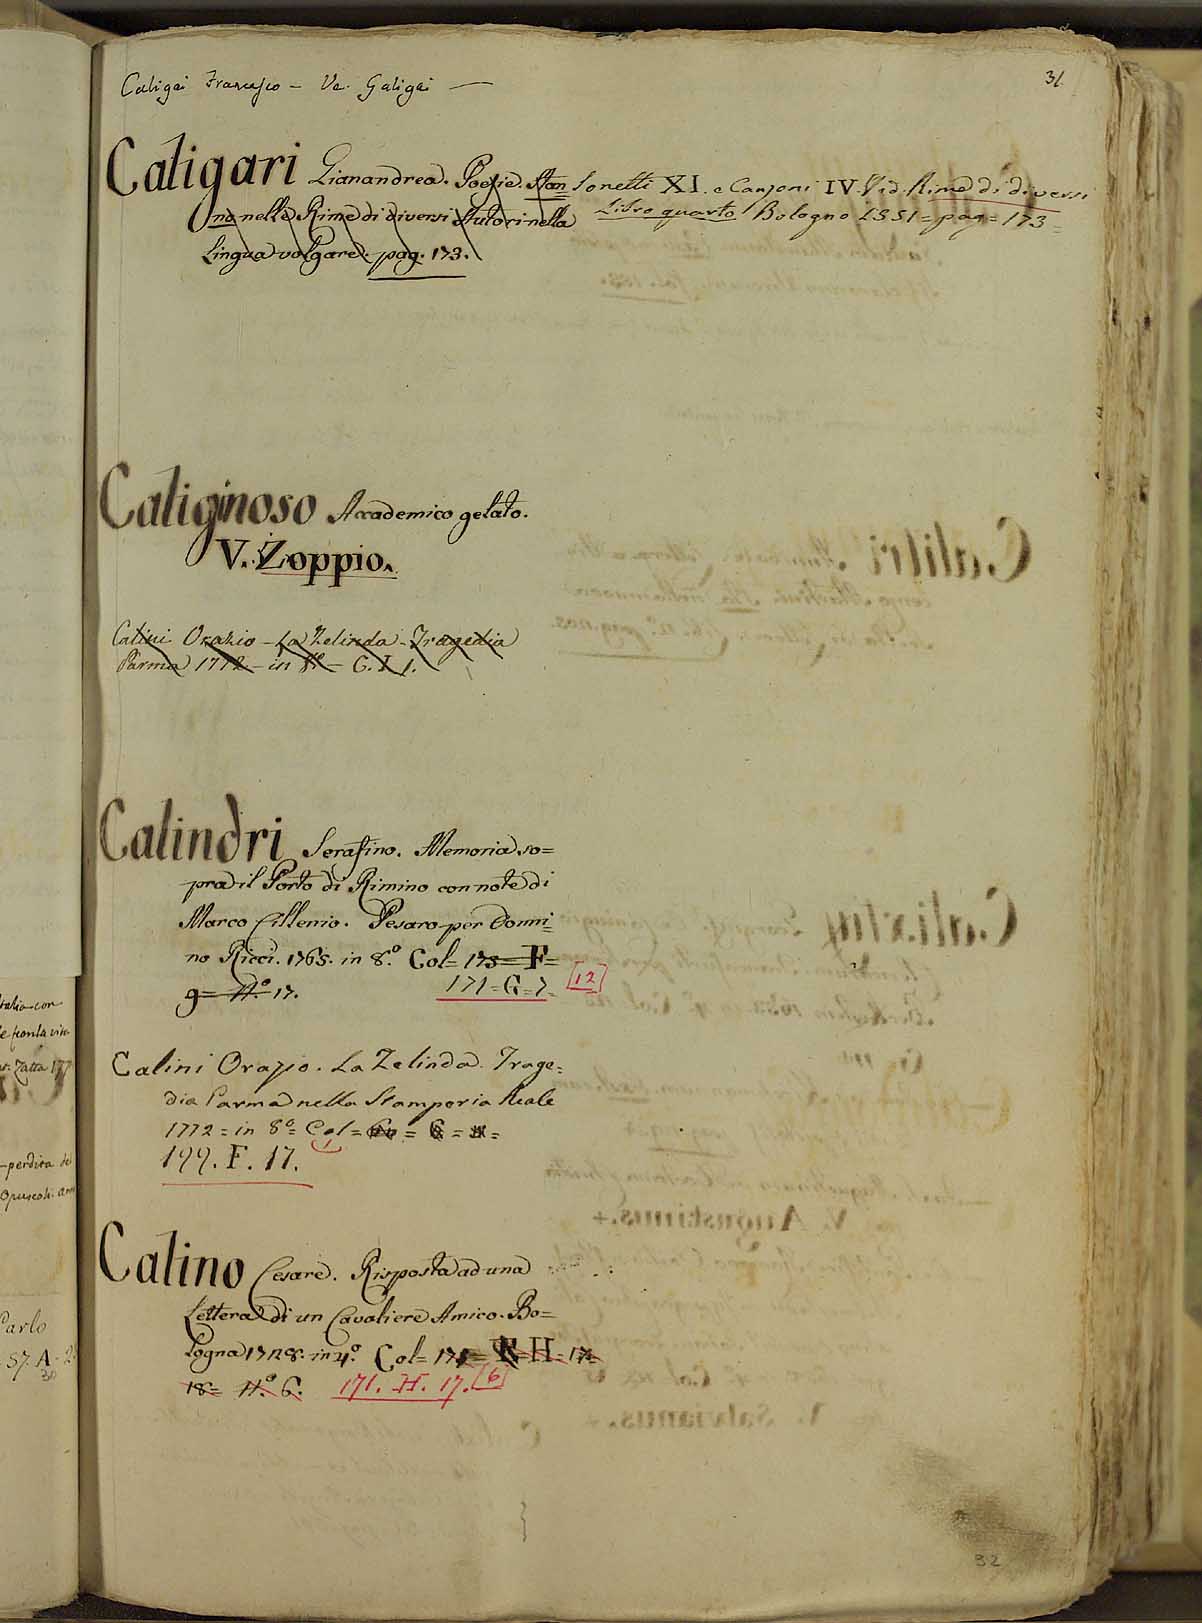 Caligai Francesco – Ve. Galigai —
31
Caligari Gianandrea. Poesie. stan Sonetti XI. e Canzoni IV. Vid. Rime di diversi
no nelle Rime di diversi Autori nella Libro quarto Bologna 1551 = pag = 173 =
Lingua volgare. pag. 173.
Caliginoso Accademico gelato.
V. Zoppio.
Calini Orazio – La Zelinda – Tragedia
Parma 1772 – in 8º – G. I. 1.
Calindri Serafino. Memoria so=
pra il Porto di Rimino con note di
Marco Cillenio. Pesaro per Donni=
no Ricci. 1765. in 8.º Col= 175= F=
9= N.º 17. 171=G=7. [12]
Calini Orazio. La Zelinda. Trage=
dia Parma nella Stamperia Reale
1772 = in 8º = Col =
199. F. 17.
Calino Cesare. Risposta ad una
Lettera di un Cavaliere Amico. Bo=
logna 1728. in 4º. Col= H= 17=
18= N.º 6. 171. H. 17. [6]
32
Italia con
Zatta 177
perdita del
Opuscoli
Parlo
57. A. 2
30